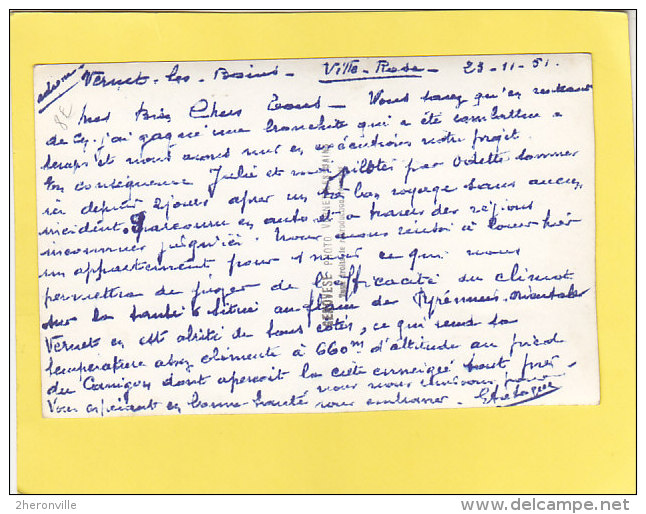 adresse
Vernet-les-Bains - Villa-Rose - 23-11-51.
Mes Bien Chers Tous - Vous savez qu'en rentrant
de j'ai gagné une bronchite qui a été combattue à
temps et nous avons mis en exécution notre projet.
En conséquence Julie et moi pilotés par Odette sommes
ici depuis 2 jours après un très bon voyage sans aucun
incident parcouru en auto et à travers des régions
inconnues jusqu'ici. Nous avons réussi à louer hier
un appartement pour 1 mois ce qui nous
permettra de juger de l'efficacité du climat
sur la santé. Situé au flanc des Pyrénées-orientales
Vernet en est abrité de tous côtés, ce qui rend sa
température assez clémente à 660m d'altitude au pied
du Canigou dont aperçoit la crête enneigée tout près
nous nous
Vous espérant en bonne santé vous embrassons.
8E
GENOVESE PHOTO VERNET LES BAINS
2heronville
www.delcampe.net